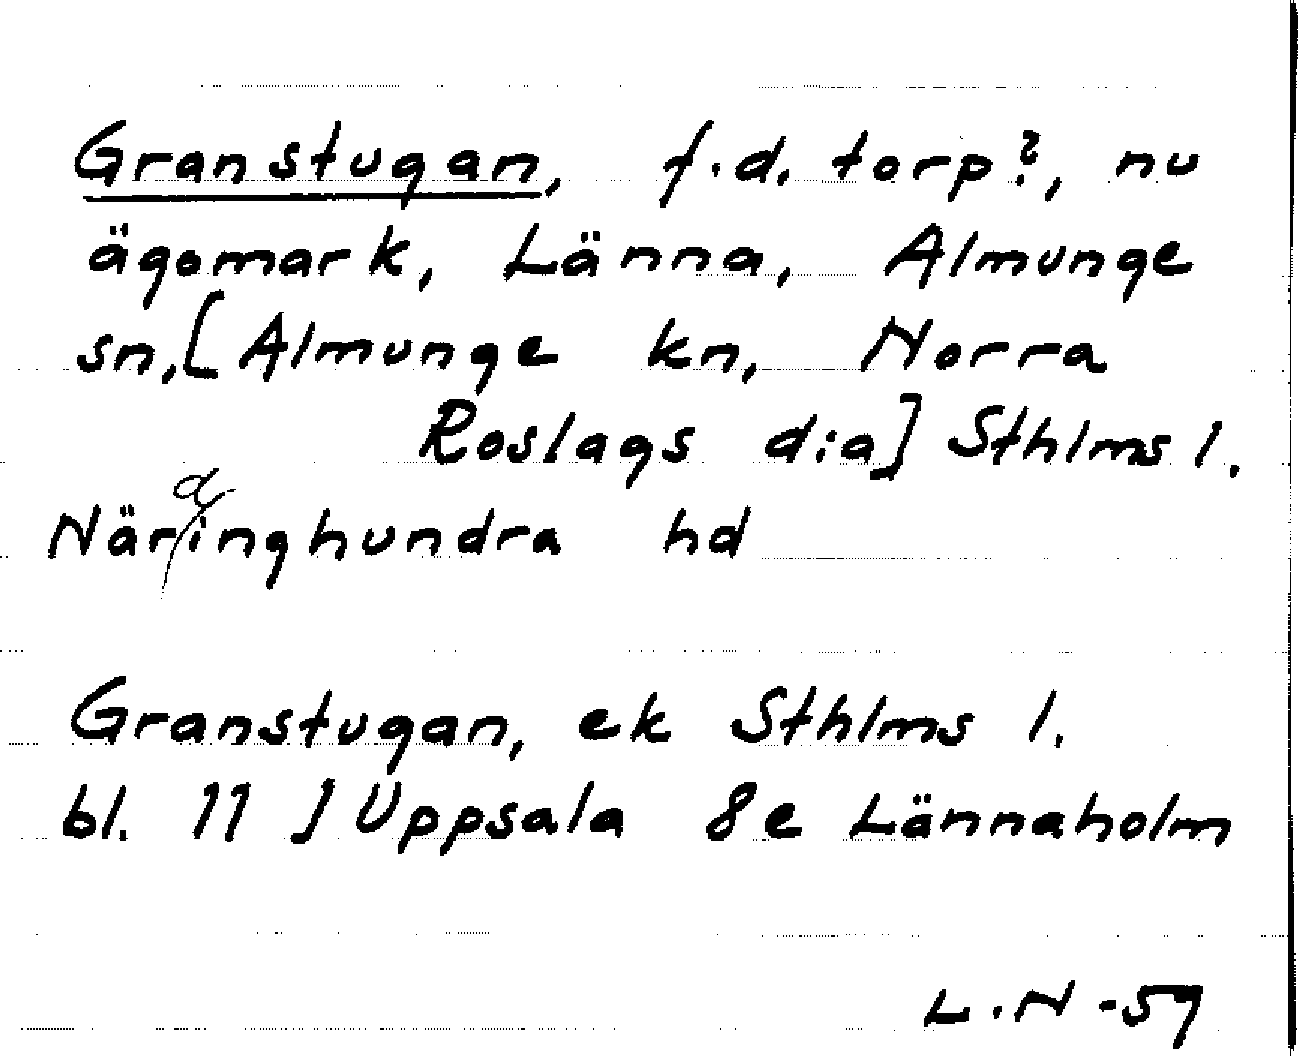 Granstugan, f.d. torp?, nu
ägomark, Länna, Almunge
sn, [Almunge kn, Norra
Roslags dia] Sthlms l.
Närdinghundra hd
Granstugan, ek Sthlms l.
bl. 11 J Uppsala 8e Lännaholm
L.N -59